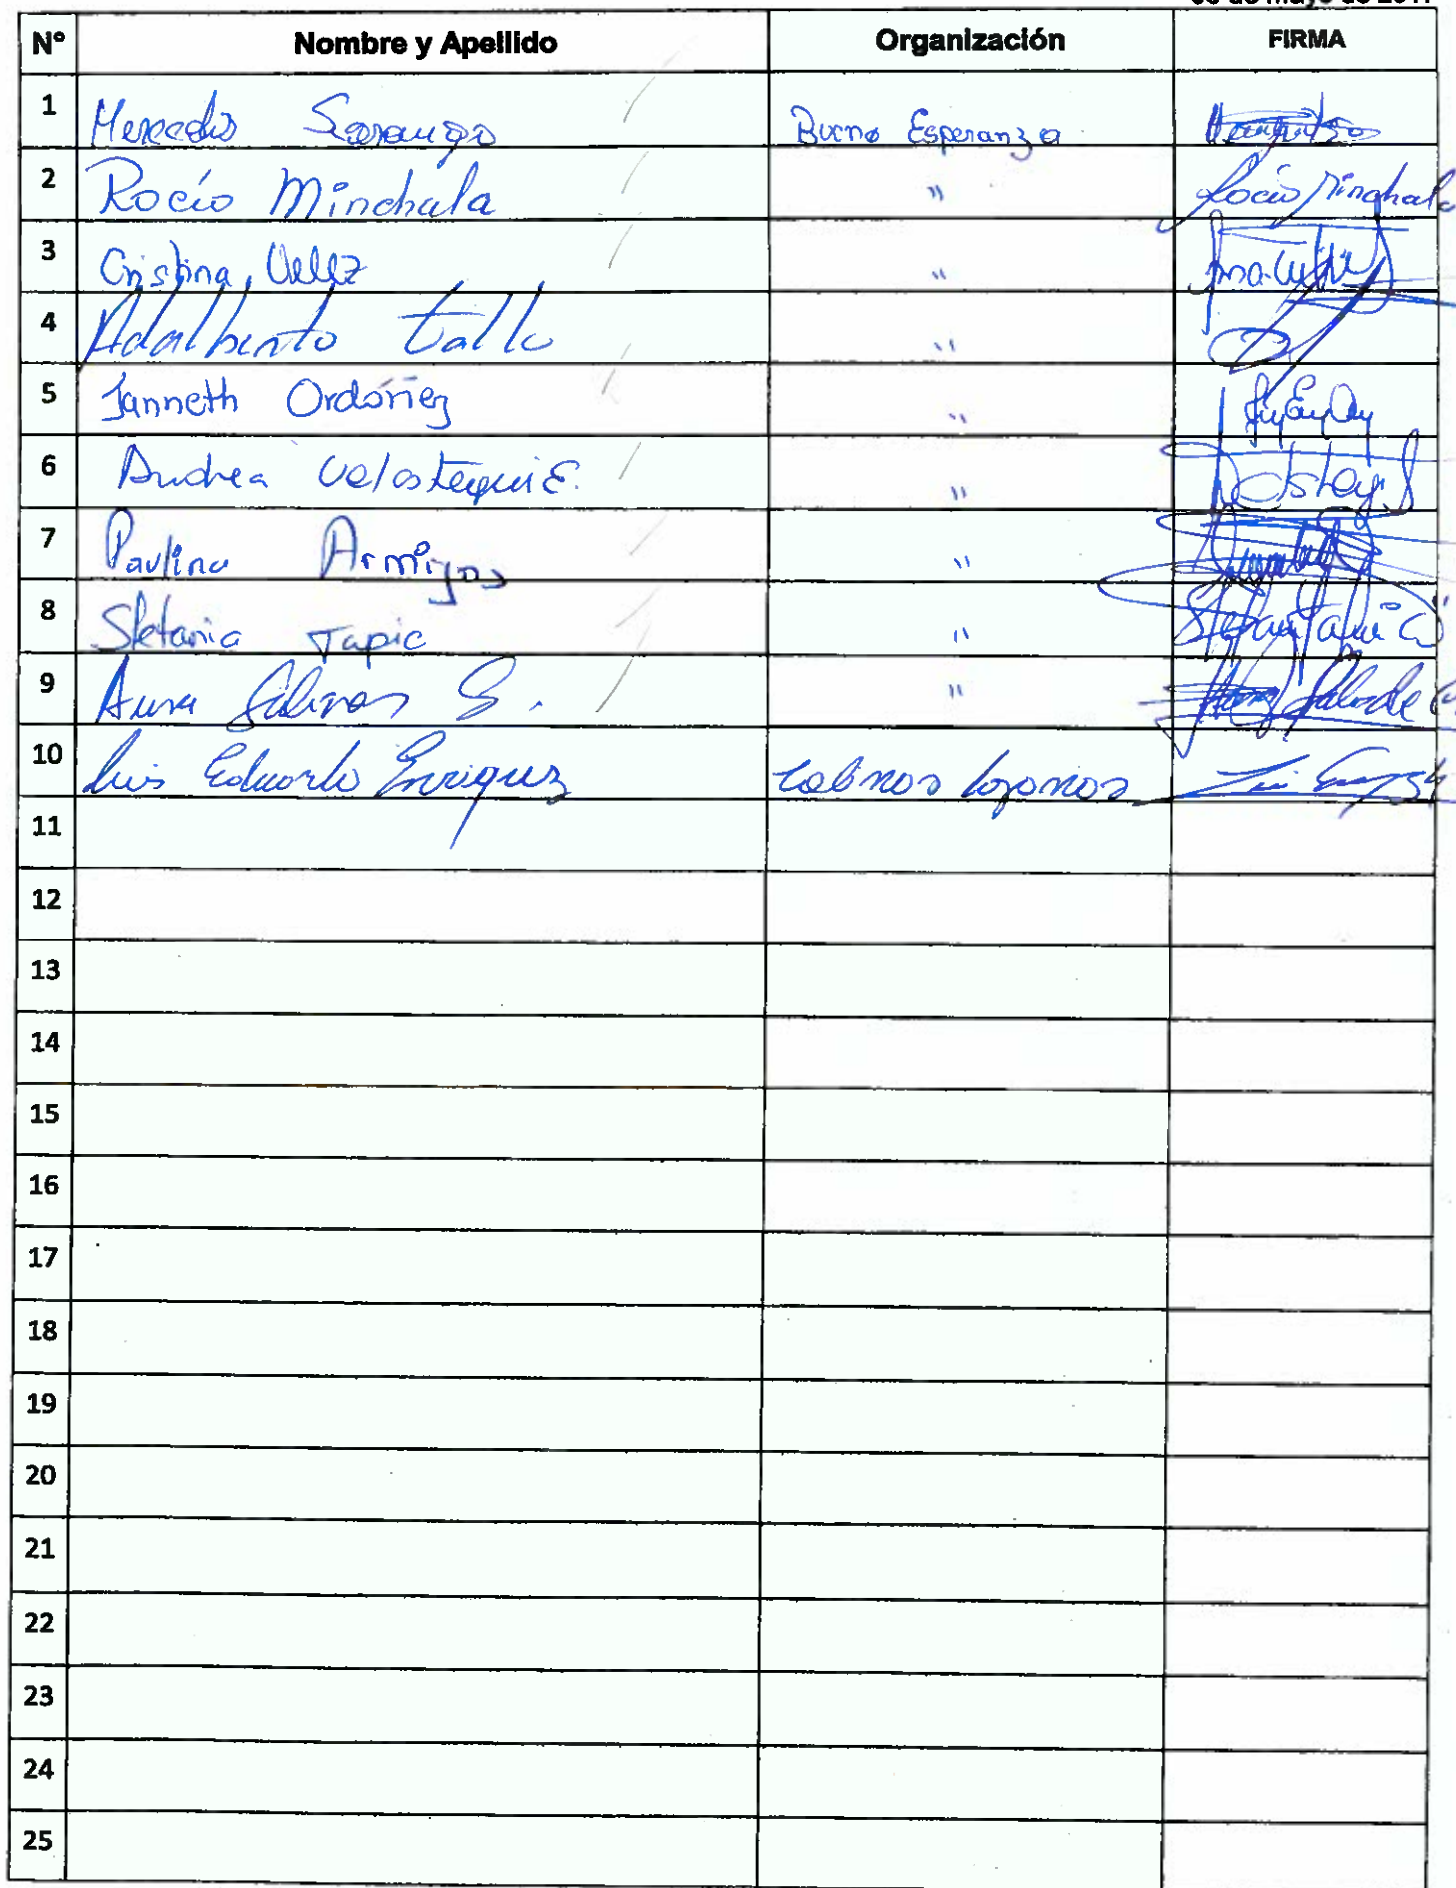 de Mayo de 201
N° Nombre y Apellido Organización FIRMA
1 Mercedes Sarango Buena Esperanza
2 Rocío Minchala " Rocío Minchala
3 Cristina Vélez "
4 Adalberto Tallo "
5 Janneth Ordóñez "
6 Andrea Velastegui E. "
7 Paulina Armijos "
8 Stefania Tapia "
9 Aura Salinas S. "
10 Luis Eduardo Enriquez
11
12
13
14
15
16
17
18
19
20
21
22
23
24
25